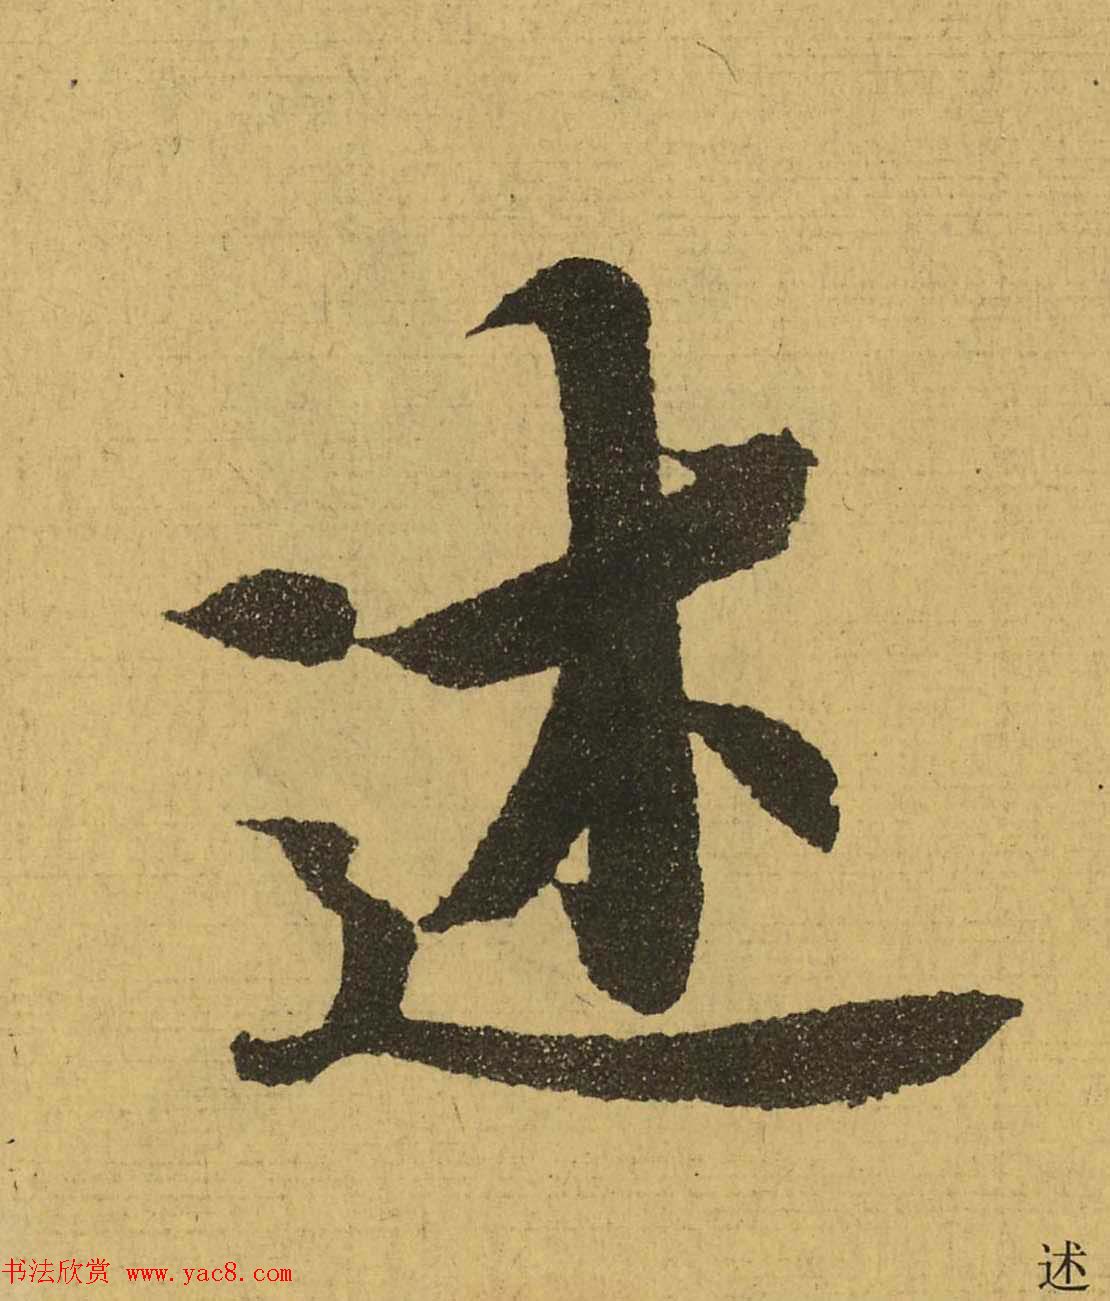 述
书法欣赏 www.yac8.com
述